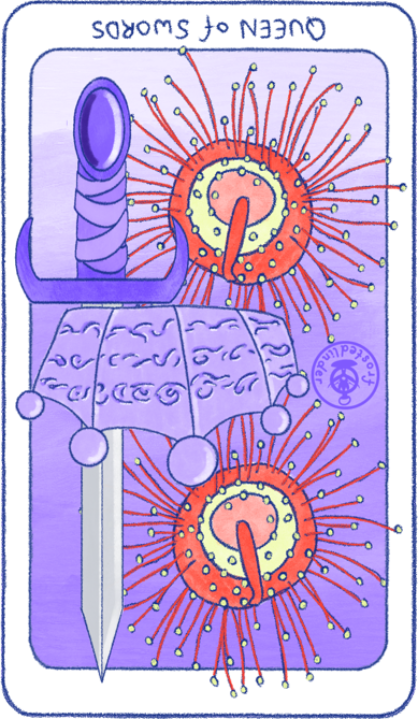 QUEEN of SWORDS
frostedlinder